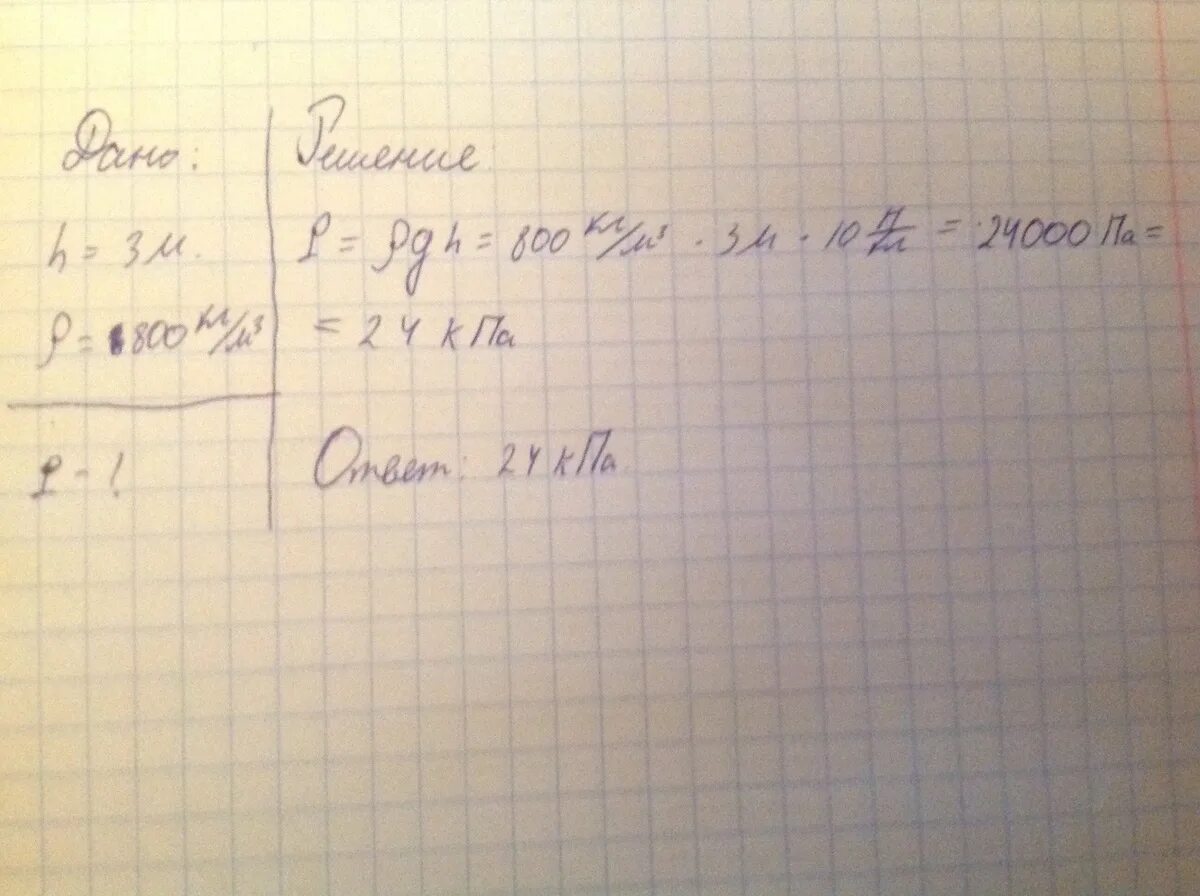 Дано:
h = 3м.
ρ = 800 кг/м³
P - ?
Решение
P = ρgh = 800 кг/м³ · 3м · 10 Н/кг = 24000 Па =
= 24 кПа
Ответ: 24 кПа